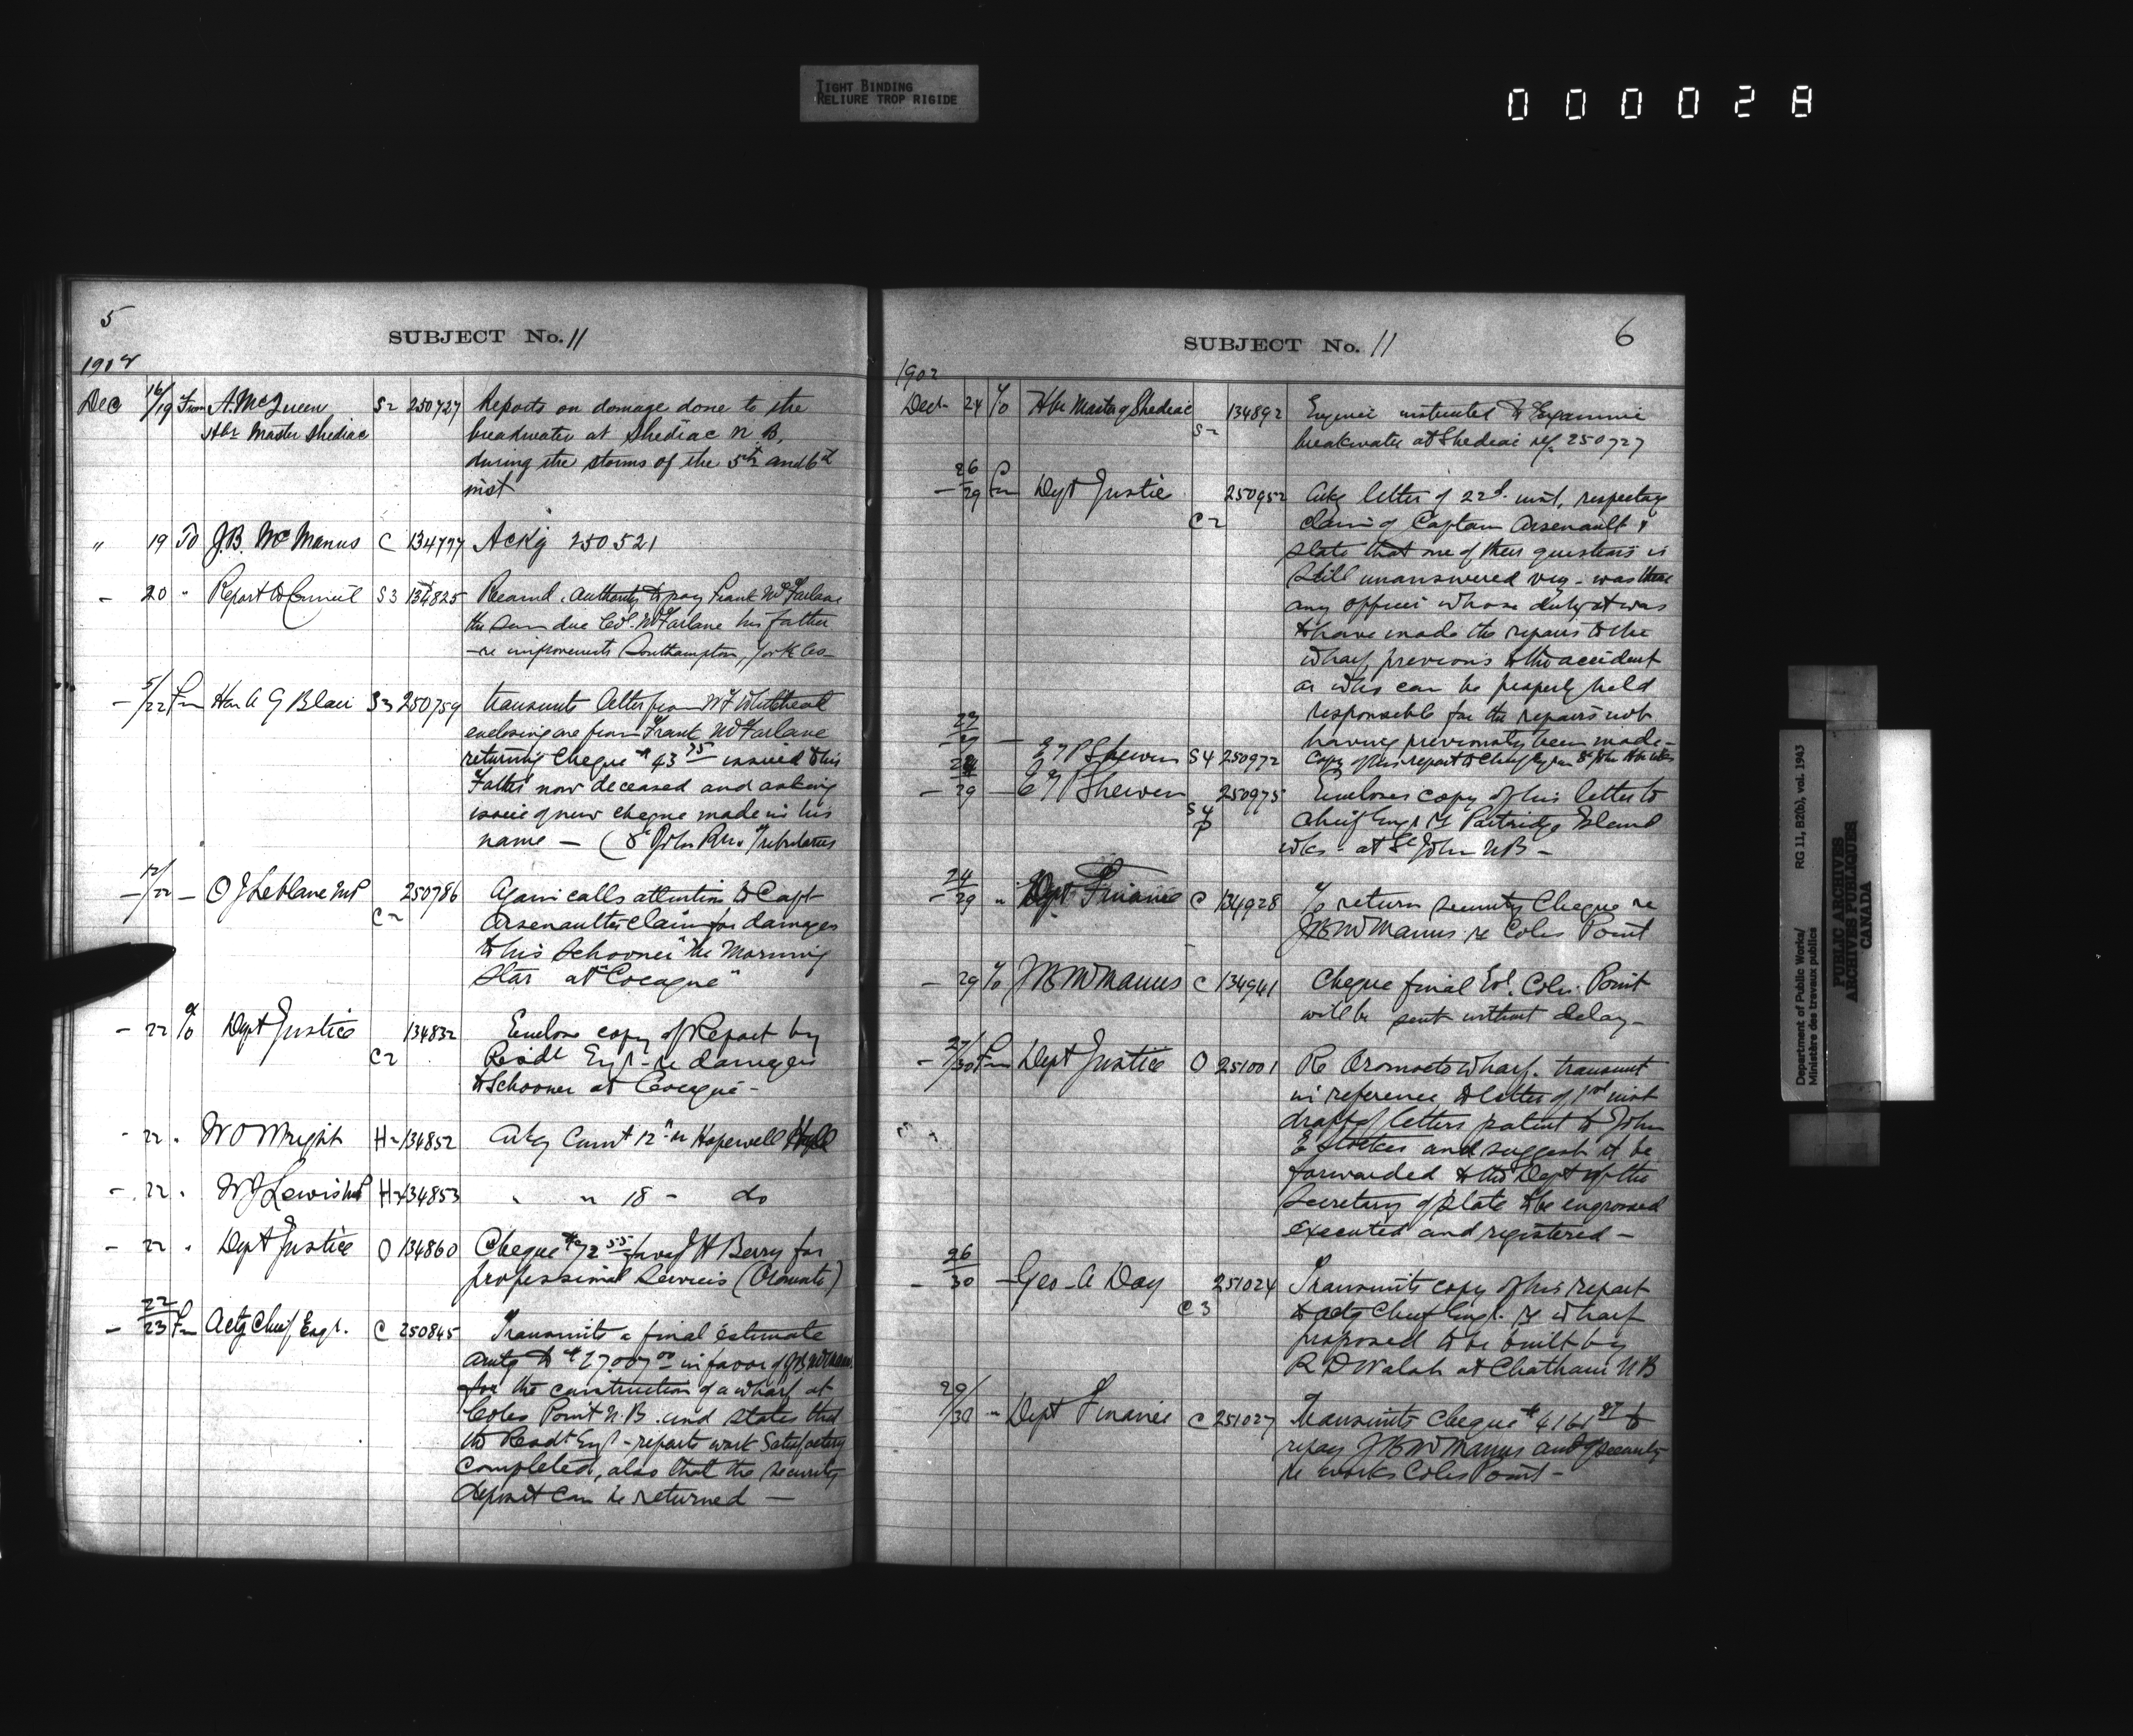 TIGHT BINDING
RELIURE TROP RIGIDE
000028
5
SUBJECT No. 11
1902
Dec 16/19 From A. McQueen S2 250727 Reports on damage done to the
Hbr Master Shediac breakwater at Shediac N.B.
during the storms of the 5th and 6th
inst
" 19 To J.B. McManus C 134777 Ackg 250521
- 20 " Report to Council S3 134825 Recomd. authority to pay Frank McFarlane
the sum due Col. McFarlane his father
- re improvements Southampton, York Co -
- 5/22 Fm Hon A G Blair S3 250759 transmits letter from W F Whitehead
enclosing one from Frank McFarlane
returning Cheque $43 75 issued to his
Father now deceased and asking
issue of new cheque made in his
name - (St John River Tributaries
- 12/22 - O J Leblanc MP 250786 Again calls attention to Capt
C2 Arsenaults claim for damages
to his Schooner "the Morning
Star at "Cocagne"
- 22 To Dept Justice 134832 Enclose copy of Report by
C2 Resdt Engr re damages
to Schooner at Cocagne -
- 22 " W O Wright H2 134852 Ackg Comt 12" re Hopewell Hill
- 22 " W J Lewis MP H2 134853 " " 18 - do
- 22 " Dept Justice O 134860 Cheque $72 55 favor J H Berry for
professional Services (Oromocto)
- 22/23 Fm Actg Chief Engr. C 250845 Transmits a final estimate
amtg to $27.007 00 in favor of J B McManus
for the construction of a wharf at
Coles Point N.B. and states that
the Resdt Engr - reports work Satisfactory
completed, also that the security
deposit can be returned -
SUBJECT No. 11 6
1902
Dec 24 To Hbr Master of Shediac 134892 Engineer instructed to Examine
S2 breakwater at Shediac ref. 250727
- 26/29 Fm Dept Justice 250952 Ackg letter of 22d. inst, respecting
C2 claim of Captain Arsenault &
state that one of their questions is
still unanswered viz - was there
any officer whose duty it was
to have made the repairs to the
wharf, previous to the accident
or who can be properly held
responsible for the repairs not
having previously been made -
27/29 - E T P Shewen S4 250972 Copy of his report to Chief Engr re St John Hbr Wks
- 24/29 - E T P Shewen 250975 Encloses copy of his letter to
S4 P Chief Engr re Partridge Island
wks - at St John NB -
- 24/29 " Dept Finance C 134928 To return security Cheque re
J B McManus re Coles Point
- 29 To J B McManus C 134941 Cheque final Est. Coles Point
will be sent without delay -
- 27/30 Fm Dept Justice O 251001 Re Oromocto Wharf. transmit
in reference to letter of 1st inst
draft of letters patent to John
E Stocker and suggest it be
forwarded to the Dept of the
Secretary of State to be engrossed
executed and registered -
- 26/30 - Geo - A Day 251024 Transmits copy of his report
C3 to actg Chief Engr. re wharf
proposed to be built by
R D Walsh at Chatham N B
29/30 " Dept Finance C 251027 Transmits cheque $4161 87 to
repay J B McManus amt of security
re works Coles Point -
Department of Public Works/
Ministère des travaux publics
RG 11, B2(b), vol. 1943
PUBLIC ARCHIVES
ARCHIVES PUBLIQUES
CANADA